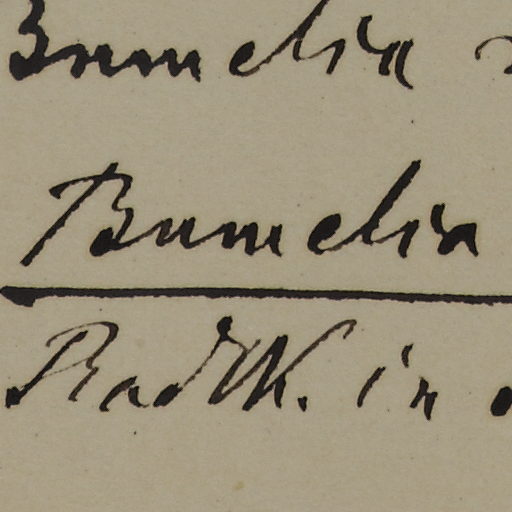 Bumelia
Bumelia
Radlk. in